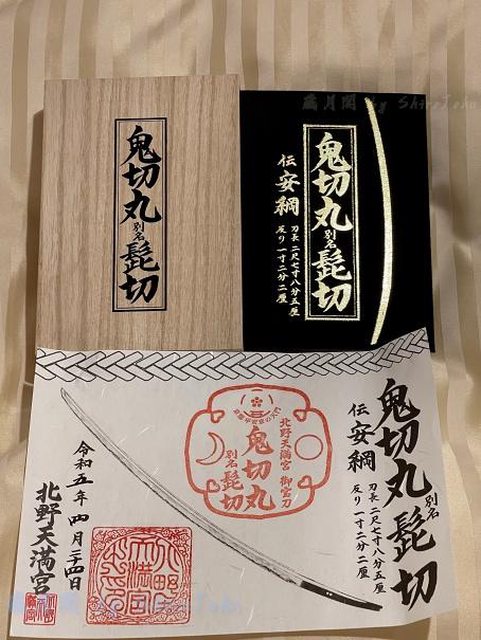 鬼切丸 別名 髭切
歳月閣 By ShiroToku
鬼切丸 別名 髭切
刀長 二尺七寸八分五厘
反り 一寸二分二厘
伝 安綱
鬼切丸 別名 髭切
刀長 二尺七寸八分五厘
反り 一寸二分二厘
伝 安綱
北野天満宮 御宝刀
鬼切丸
別名 髭切
令和五年 四月二十四日
北野天満宮